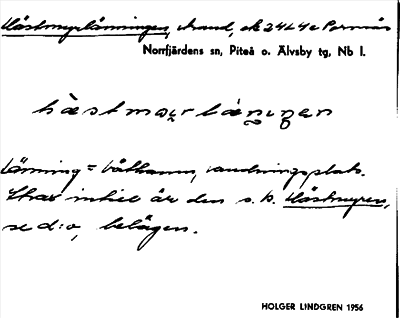 Hästmyrlänningen, strand, ek 24L4e Pornäs
Norrfjärdens sn, Piteå o. Älvsby tg, Nb l.
hästmyrlänningen
Länning = båthamn, landningsplats.
Strax intill är den s.k. Hästmyren,
se d:o, belägen.
HOLGER LINDGREN 1956